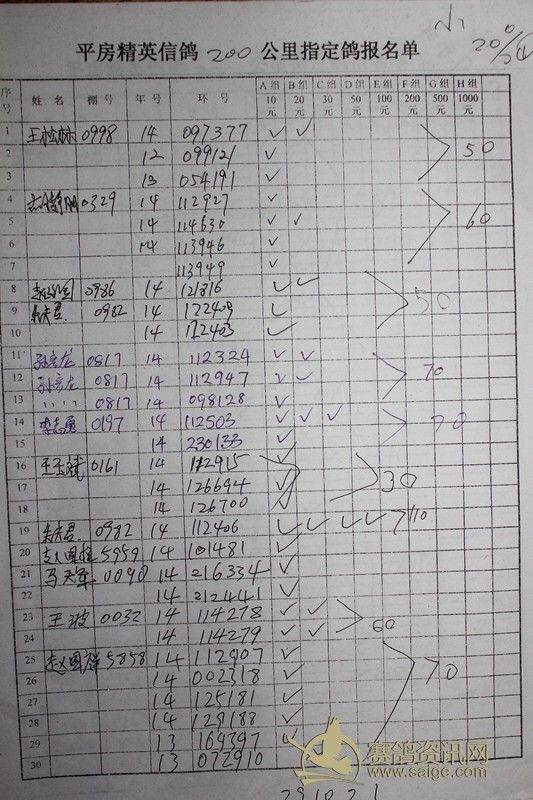 平房精英信鸽 200 公里指定鸽报名单
序号 姓名 棚号 年号 环号 A组10元 B组20元 C组30元 D组50元 E组100元 F组200元 G组500元 H组1000元
1 王松林 0998 14 097377 ✓ ✓
2 12 099121 ✓ 50
3 13 054191 ✓
4 0329 14 112927 ✓
5 14 114630 ✓ ✓ 60
6 14 113946 ✓
7 113949 ✓
8 0986 14 121816 ✓ ✓
9 0982 14 122409 ✓ 50
10 14 112403 ✓
11 孙彦龙 0817 14 112324 ✓ ✓
12 孙彦龙 0817 14 112947 ✓ ✓ 70
13 〃 0817 14 098128 ✓
14 李志勇 0197 14 112503 ✓ ✓ ✓ 70
15 14 230133 ✓
16 王玉斌 0161 14 112915
17 14 126694 ✓ 30
18 14 126700 ✓
19 0982 14 112406 ✓ ✓ ✓ ✓ 110
20 5959 14 101481 ✓
21 马天军 0090 14 216334 ✓
22 14 212441 ✓
23 王波 0032 14 114278 ✓ ✓
24 14 114279 ✓ ✓ 60
25 赵国群 5858 14 112907 ✓
26 14 002318 ✓ 70
27 14 125181 ✓
28 14 129188 ✓
29 13 169397 ✓
30 13 072910
赛鸽资讯网
www.saige.com